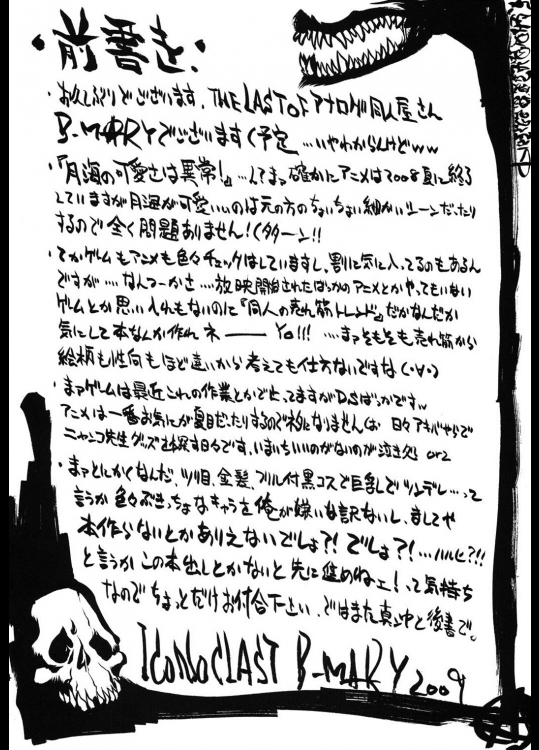 ・前書き・
・お久しぶりでございます、THE LAST OF アナログ同人屋さん
B-MARYでございます(予定 …いやわからんけどww
・『月海の可愛さは異常!』…してまぁ確かにアニメは2008夏に終了
していますが月海が可愛いいのは元の方のちょいちょい細かいシーンだったり
するので全く問題ありません!(タターン!!
・てかゲームもアニメも色々チェックはしていますし、割に気に入ってるのもあるん
ですが…なんつーかさ…放映開始されたばっかのアニメとかやってもいない
ゲームとか思い入れもないのに『同人の売れ筋トレンド』だかなんだか
気にして本なんか作れ ネ――Yo!!! …まぁそもそも売れ筋から
絵柄も性向もほど遠いから考えても仕方ないですな(・∀・)
・まぁゲームは最近これの作業とかで止ってますがDSばっかですw
アニメは一番お気にが夏目だったりするのでネタになりませんは 日々アキバやらで
ニャンコ先生グッズ出没す日々です、いまいちいいのがないのが泣き処 orz
・まぁとにかくなんだ、ツリ目、金髪、フリル付黒コスで巨乳でツンデレ…って
言うか色々ぶきっちょなキャラを俺が嫌いな訳ないし、ましてや
本作らないとかありえないでしょ?! でしょ?! …ハルヒ?!!
と言うかこの本出しとかないと先に進めねェ!って気持ち
なのでちょっとだけお付合下さい、ではまた真ン中と後書で。
ICONOCLAST B-MARY 2009